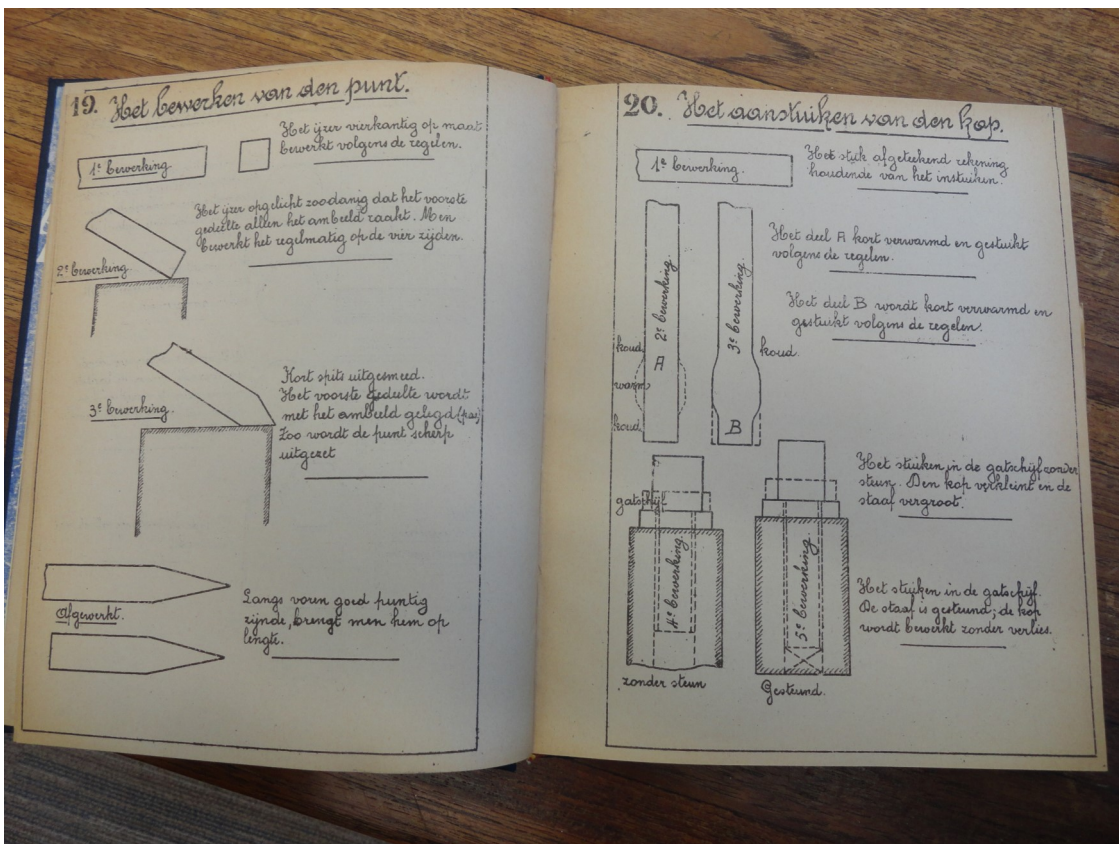 19. Het bewerken van den punt.
1e bewerking
Het ijzer vierkantig op maat
bewerkt volgens de regelen.
Het ijzer opgelicht zoodanig dat het voorste
gedeelte allen het ambeeld raakt. Men
bewerkt het regelmatig op de vier zijden.
2e bewerking
3e bewerking.
Kort spits uitgesmeed.
Het voorste gedeelte wordt
met het ambeeld gelegd (pas)
Zoo wordt de punt scherp
uitgezet
Afgewerkt.
Langs voren goed puntig
zijnde, brengt men hem op
lengte.
20. Het aanstuiken van den kop.
1e bewerking.
Het stuk afgeteekend rekening
houdende van het instuiken.
2e bewerking.
3e bewerking.
Het deel A kort verwarmd en gestuikt
volgens de regelen.
Het deel B wordt kort verwarmd en
gestuikt volgens de regelen.
koud
A
koud.
warm
koud
B
Het stuiken in de gatschijf zonder
steun. Den kop verkleint en de
staaf vergroot.
gatschijf
4e bewerking.
5e bewerking.
Het stuiken in de gatschijf.
De staaf is gesteund; de kop
wordt bewerkt zonder verlies.
zonder steun
Gesteund.